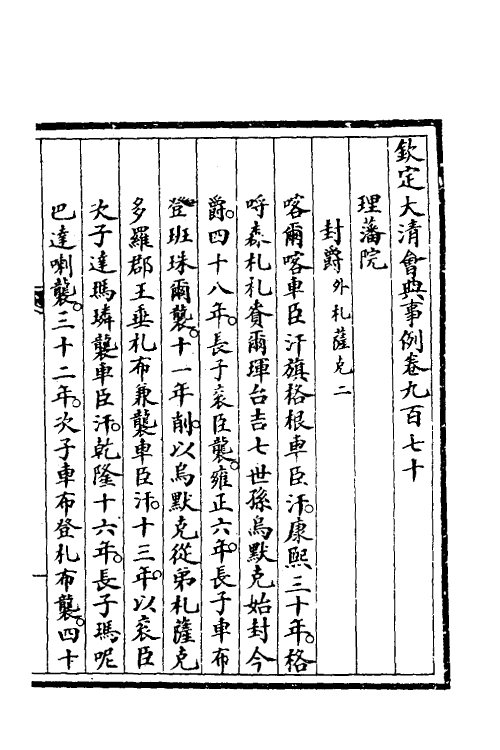 欽定大清會典事例卷九百七十
理藩院
封爵外札薩克二
喀爾喀車臣汗旗格根車臣汗。康熙三十年。格
呼森札札賚爾琿台吉七世孫烏默克始封今
爵。四十八年。長子袞臣襲。雍正六年。長子車布
登班珠爾襲。十一年削。以烏默克從弟札薩克
多羅郡王垂札布兼襲車臣汗。十三年。以袞臣
次子達瑪璘襲車臣汗。乾隆十六年。長子瑪呢
巴達喇襲。三十二年。次子車布登札布襲。四十